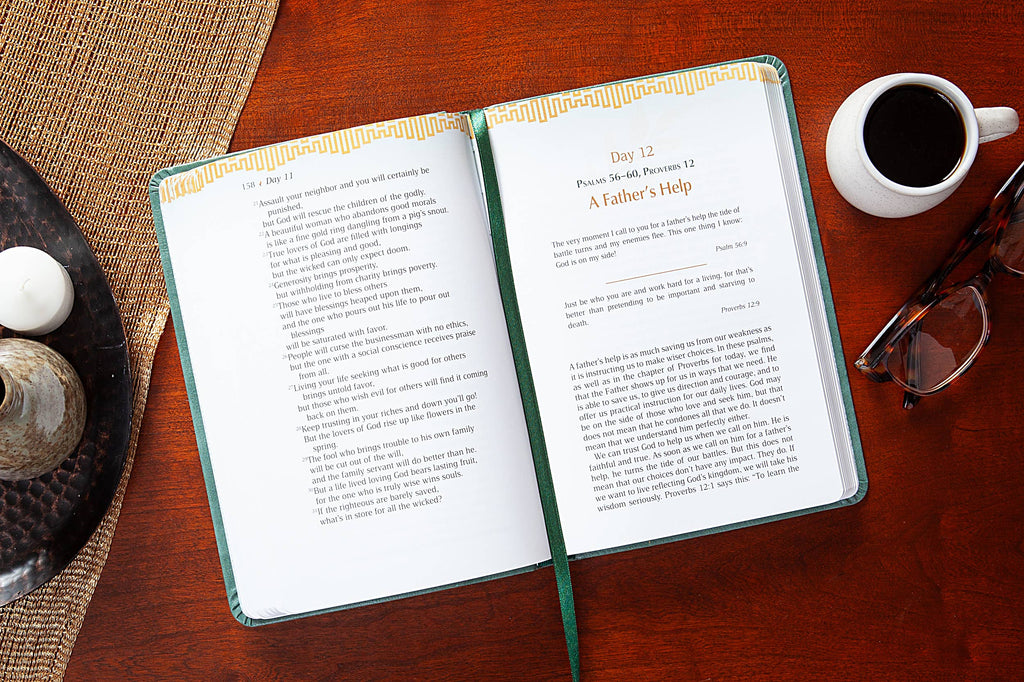 158 ‹ Day 11
21Assault your neighbor and you will certainly be
punished,
but God will rescue the children of the godly.
22A beautiful woman who abandons good morals
is like a fine gold ring dangling from a pig's snout.
23True lovers of God are filled with longings
for what is pleasing and good,
but the wicked can only expect doom.
24Generosity brings prosperity,
but withholding from charity brings poverty.
25Those who live to bless others
will have blessings heaped upon them,
and the one who pours out his life to pour out
blessings
will be saturated with favor.
26People will curse the businessman with no ethics,
but the one with a social conscience receives praise
from all.
27Living your life seeking what is good for others
brings untold favor,
but those who wish evil for others will find it coming
back on them.
28Keep trusting in your riches and down you'll go!
But the lovers of God rise up like flowers in the
spring.
29The fool who brings trouble to his own family
will be cut out of the will,
and the family servant will do better than he.
30But a life lived loving God bears lasting fruit,
for the one who is truly wise wins souls.
31If the righteous are barely saved,
what's in store for all the wicked?
Day 12
Psalms 56–60, Proverbs 12
A Father's Help
The very moment I call to you for a father's help the tide of
battle turns and my enemies flee. This one thing I know:
God is on my side!
Psalm 56:9
Just be who you are and work hard for a living, for that's
better than pretending to be important and starving to
death.
Proverbs 12:9
A father's help is as much saving us from our weakness as
it is instructing us to make wiser choices. In these psalms,
as well as in the chapter of Proverbs for today, we find
that the Father shows up for us in ways that we need. He
is able to save us, to give us direction and courage, and to
offer us practical instruction for our daily lives. God may
be on the side of those who love and seek him, but that
does not mean that he condones all that we do. It doesn't
mean that we understand him perfectly either.
We can trust God to help us when we call on him. He is
faithful and true. As soon as we call on him for a father's
help, he turns the tide of our battles. But this does not
mean that our choices don't have any impact. They do. If
we want to live reflecting God's kingdom, we will take his
wisdom seriously. Proverbs 12:1 says this: "To learn the